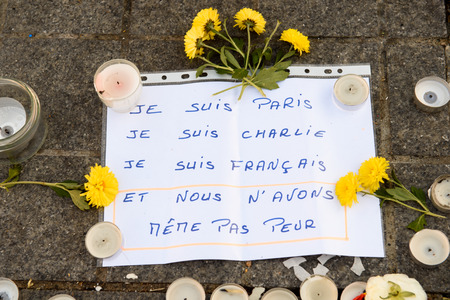 JE SUIS PARIS
JE SUIS CHARLIE
JE SUIS FRANÇAIS
ET NOUS N'AVONS
MÊME PAS PEUR